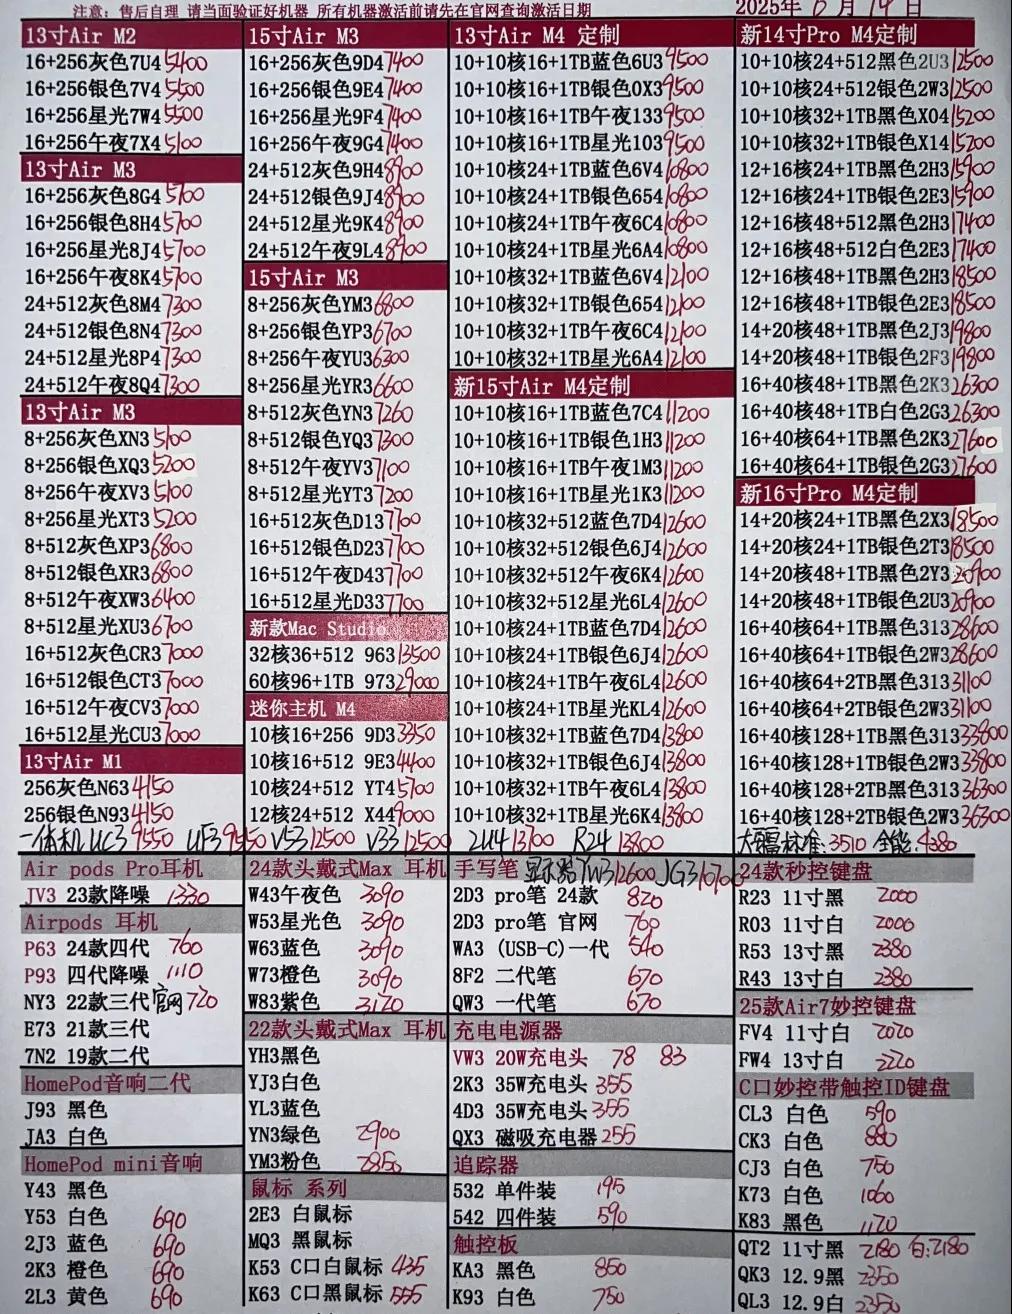 注意：售后自理 请当面验证好机器 所有机器激活前请先在官网查询激活日期
2025年6月19日
13寸Air M2
16+256灰色7U4 5400
16+256银色7V4 5500
16+256星光7W4 5500
16+256午夜7X4 5100
13寸Air M3
16+256灰色8G4 5700
16+256银色8H4 5700
16+256星光8J4 5700
16+256午夜8K4 5700
24+512灰色8M4 7300
24+512银色8N4 7300
24+512星光8P4 7300
24+512午夜8Q4 7300
13寸Air M3
8+256灰色XN3 5100
8+256银色XQ3 5200
8+256午夜XV3 5100
8+256星光XT3 5200
8+512灰色XP3 6800
8+512银色XR3 6800
8+512午夜XW3 6400
8+512星光XU3 6700
16+512灰色CR3 7000
16+512银色CT3 7000
16+512午夜CV3 7000
16+512星光CU3 7000
13寸Air M1
256灰色N63 4150
256银色N93 4150
15寸Air M3
16+256灰色9D4 7400
16+256银色9E4 7400
16+256星光9F4 7400
16+256午夜9G4 7400
24+512灰色9H4 8900
24+512银色9J4 8900
24+512星光9K4 8900
24+512午夜9L4 8900
15寸Air M3
8+256灰色YM3 6800
8+256银色YP3 6700
8+256午夜YU3 6300
8+256星光YR3 6600
8+512灰色YN3 7260
8+512银色YQ3 7300
8+512午夜YV3 7100
8+512星光YT3 7200
16+512灰色D13 7700
16+512银色D23 7700
16+512午夜D43 7700
16+512星光D33 7700
新款Mac Studio
32核36+512 963 13500
60核96+1TB 973 29000
迷你主机 M4
10核16+256 9D3 3350
10核16+512 9E3 4400
10核24+512 YT4 5700
12核24+512 X44 9000
13寸Air M4 定制
10+10核16+1TB蓝色6U3 9500
10+10核16+1TB银色0X3 9500
10+10核16+1TB午夜133 9500
10+10核16+1TB星光103 9500
10+10核24+1TB蓝色6V4 10800
10+10核24+1TB银色654 10800
10+10核24+1TB午夜6C4 10800
10+10核24+1TB星光6A4 10800
10+10核32+1TB蓝色6V4 12100
10+10核32+1TB银色654 12100
10+10核32+1TB午夜6C4 12100
10+10核32+1TB星光6A4 12100
新15寸Air M4定制
10+10核16+1TB蓝色7C4 11200
10+10核16+1TB银色1H3 11200
10+10核16+1TB午夜1M3 11200
10+10核16+1TB星光1K3 11200
10+10核32+512蓝色7D4 12600
10+10核32+512银色6J4 12600
10+10核32+512午夜6K4 12600
10+10核32+512星光6L4 12600
10+10核24+1TB蓝色7D4 12600
10+10核24+1TB银色6J4 12600
10+10核24+1TB午夜6L4 12600
10+10核24+1TB星光KL4 12600
10+10核32+1TB蓝色7D4 13800
10+10核32+1TB银色6J4 13800
10+10核32+1TB午夜6L4 13800
10+10核32+1TB星光6K4 13800
新14寸Pro M4定制
10+10核24+512黑色2U3 12500
10+10核24+512银色2W3 12500
10+10核32+1TB黑色X04 15200
10+10核32+1TB银色X14 15200
12+16核24+1TB黑色2H3 15900
12+16核24+1TB银色2E3 15900
12+16核48+512黑色2H3 17400
12+16核48+512白色2E3 17400
12+16核48+1TB黑色2H3 18500
12+16核48+1TB银色2E3 18500
14+20核48+1TB黑色2J3 19800
14+20核48+1TB银色2F3 19800
16+40核48+1TB黑色2K3 26300
16+40核48+1TB白色2G3 26300
16+40核64+1TB黑色2K3 27600
16+40核64+1TB银色2G3 27600
新16寸Pro M4定制
14+20核24+1TB黑色2X3 18500
14+20核24+1TB银色2T3 18500
14+20核48+1TB黑色2Y3 20900
14+20核48+1TB银色2U3 20900
16+40核64+1TB黑色313 28600
16+40核64+1TB银色2W3 28600
16+40核64+2TB黑色313 31100
16+40核64+2TB银色2W3 31100
16+40核128+1TB黑色313 33800
16+40核128+1TB银色2W3 33800
16+40核128+2TB黑色313 36300
16+40核128+2TB银色2W3 36300
一体机UC3 9550 UF3 9550 V53 12500 V33 12500 2U4 13700 R24 13800 大疆标准:3510 全能:4380
Air pods Pro耳机
JV3 23款降噪 1330
Airpods 耳机
P63 24款四代 760
P93 四代降噪 1110
NY3 22款三代 官网 720
E73 21款三代
7N2 19款二代
HomePod音响二代
J93 黑色
JA3 白色
HomePod mini音响
Y43 黑色
Y53 白色 690
2J3 蓝色 690
2K3 橙色 690
2L3 黄色 690
24款头戴式Max 耳机
W43午夜色 3090
W53星光色 3090
W63蓝色 3090
W73橙色 3090
W83紫色 3120
22款头戴式Max 耳机
YH3黑色
YJ3白色
YL3蓝色
YN3绿色 2900
YM3粉色 2850
鼠标 系列
2E3 白鼠标
MQ3 黑鼠标
K53 C口白鼠标 435
K63 C口黑鼠标 555
手写笔 显示器YW3 12600 JG3 10700
2D3 pro笔 24款 820
2D3 pro笔 官网 760
WA3 (USB-C)一代 540
8F2 二代笔 670
QW3 一代笔 670
充电电源器
VW3 20W充电头 78 83
2K3 35W充电头 355
4D3 35W充电头 355
QX3 磁吸充电器 255
追踪器
532 单件装 195
542 四件装 590
触控板
KA3 黑色 850
K93 白色 750
24款秒控键盘
R23 11寸黑 2000
R03 11寸白 2000
R53 13寸黑 2380
R43 13寸白 2380
25款Air7妙控键盘
FV4 11寸白 2020
FW4 13寸白 2220
C口妙控带触控ID键盘
CL3 白色 590
CK3 白色 880
CJ3 白色 750
K73 白色 1060
K83 黑色 1170
QT2 11寸黑 2180 白:2180
QK3 12.9黑 2350
QL3 12.9白 2350